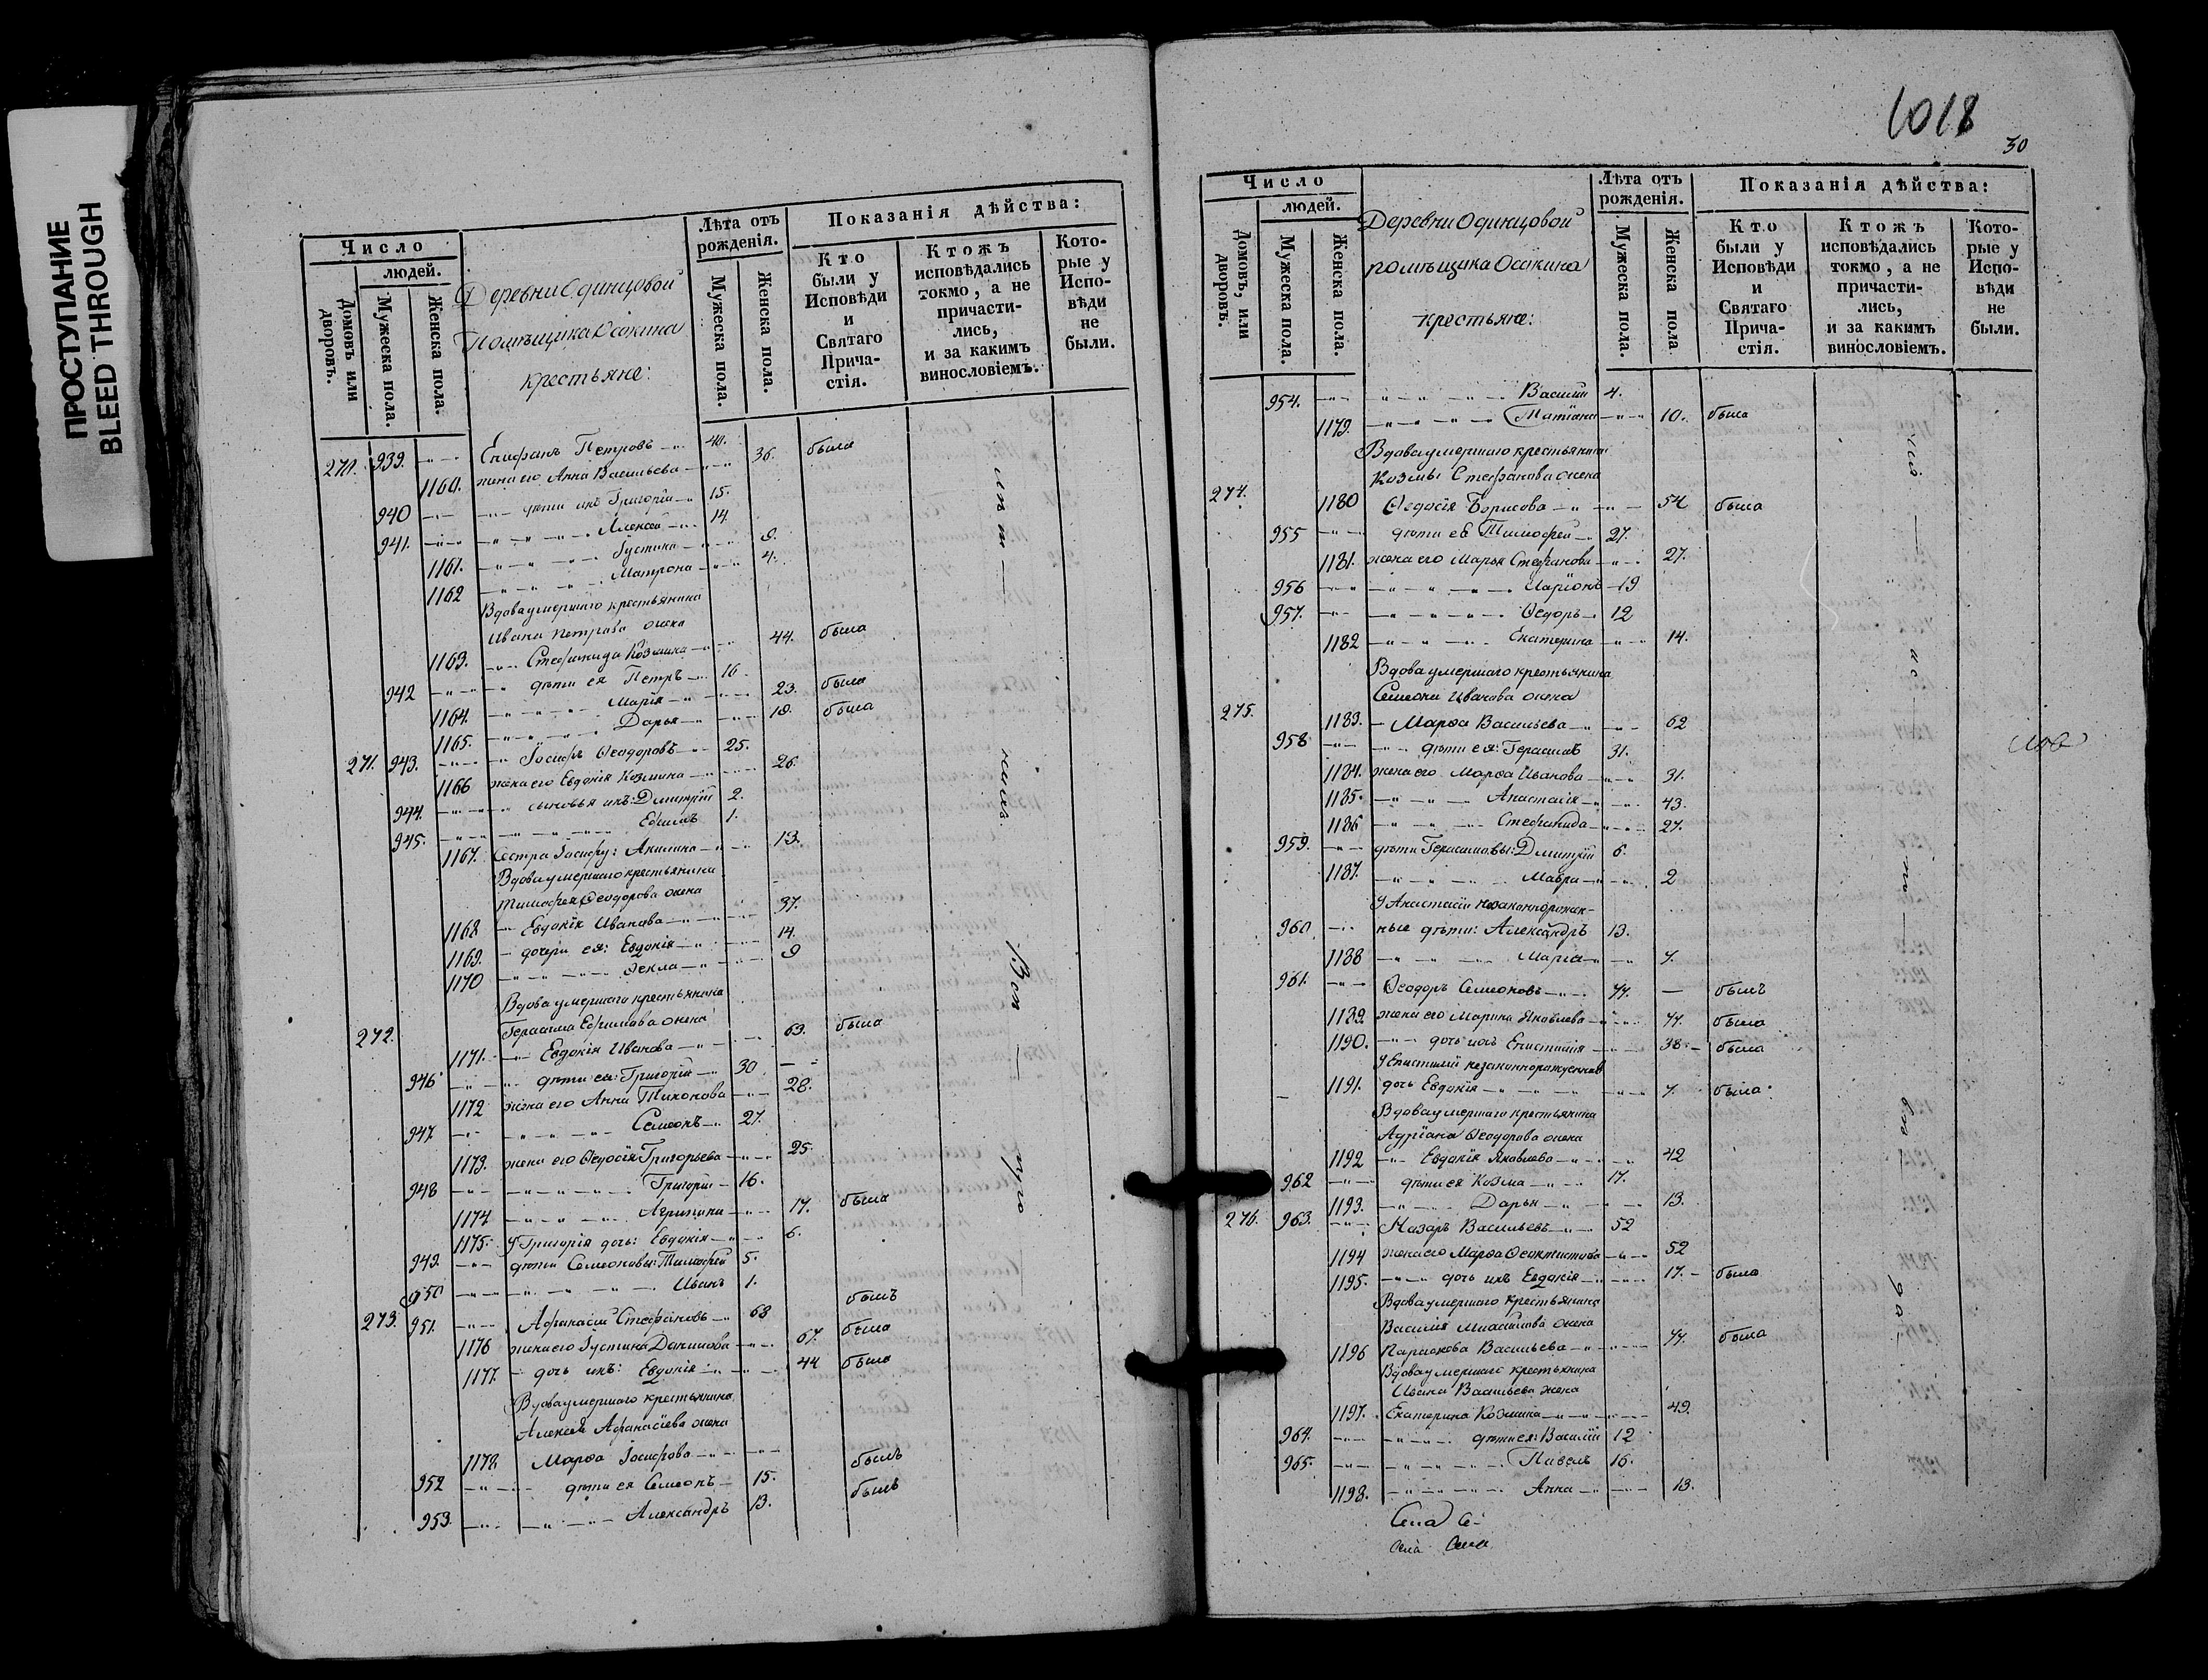 ПРОСТУПАНИЕ
BLEED THROUGH
Число
людей.
Домовъ или дворовъ.
Мужеска пола.
Женска пола.
Деревни Одинцовой
Помѣщика Осокина
крестьяне:
Лѣта отъ рожденія.
Мужеска пола.
Женска пола.
Показанія дѣйства:
Кто были у Исповѣди и Святаго Прича-стія.
Ктожъ исповѣдались токмо, а не причасти-лись, и за какимъ винословіемъ.
Кото-рые у Испо-вѣди не были.
270. 939. Епифанъ Петровъ 40.
1160. жена его Анна Васильева 36. была
940 дѣти ихъ Григорій 15.
941. Алексѣй 14.
1161. Іустина 8.
1162 Матрона 4.
Вдова умершаго крестьянина
Ивана Петрова жена
1163. Стефанида Козмина 44. была
942 дѣти ея Петръ 16.
1164. Марія 23. была
1165. Дарья 18. была
271. 943. Іосифъ Ѳеодоровъ 25.
1166 жена его Евдокія Козмина 26.
944. сыновья ихъ: Дмитрій 2.
945. Ефимъ 1.
1167. Сестра Іосифу: Акилина 13.
Вдова умершаго крестьянина
Тимофея Ѳеодорова жена
1168 Евдокія Иванова 37.
1169. дочери ея: Евдокія 14.
1170 Ѳекла 9
Вдова умершаго крестьянина
272. Герасима Ефимова жена
1171. Евдокія Иванова 63. была
946 дѣти ея: Григорій 30
1172 жена его Анна Тихонова 28.
947. Семеонъ 27.
1173. жена его Ѳедосія Григорьева 25.
948 Григорій 16.
1174 Агрипина 17. была
1175. У Григорія дочь: Евдокія 6.
949. дѣти Семеоновы: Тимофей 5.
950 Иванъ 1.
273. 951. Афанасій Стефановъ 68 былъ
1176 жена его Іустина Данилова 67. была
1177. дочь ихъ: Евдокія 44 была
Вдова умершаго крестьянина
Алексѣя Афанасіева жена
1178. Марѳа Іосифова
952 дѣти ея Семеонъ 15. былъ
953. Александръ 13. былъ
1018
30
Число
людей.
Домовъ, или дворовъ.
Мужеска пола.
Женска пола.
Деревни Одинцовой
помѣщика Осокина
крестьяне:
Лѣта отъ рожденія.
Мужеска пола.
Женска пола
Показанія дѣйства:
Кто были у Исповѣди и Святаго Прича-стія.
Ктожъ исповѣдались токмо, а не причасти-лись, и за какимъ винословіемъ.
Кото-рые у Испо-вѣди не были.
954. Василій 4.
1179. 10. была
Вдова умершаго крестьянина
Козмы Стефанова жена
274. 1180 Ѳедосія Борисова 54 была
955 дѣти ея Тимофей 27.
1181. жена его Марья Стефанова 27.
956 Иларіонъ 19
957. Ѳедоръ 12
1182 Екатерина 14.
Вдова умершаго крестьянина
Семеона Иванова жена
275. 1183. Марѳа Васильева 62
958 дѣти ея: Герасимъ 31.
1184. жена его Марѳа Иванова 31.
1185. Анастасія 43.
1186 Стефанида 27.
959. дѣти Герасимовы: Дмитрій 6.
1187. Мавра 2
У Анастасіи незаконнорожден-
960 ные дѣти: Александръ 13.
1188 Марія 7.
961. Ѳеодоръ Семеоновъ 77. былъ
1189 жена его Марина Яковлева 77. была
1190. дочь ихъ Епистимія 38 была
У Епистиміи незаконнорожденная
1191. дочь Евдокія 7. была
Вдова умершаго крестьянина
Адріана Ѳеодорова жена
1192 Евдокія Яковлева 42
962 дѣти ея Козма 17.
1193. Дарья 13.
276. 963. Назаръ Васильевъ 52
1194 жена его Марѳа Ѳеоктистова 52
1195. дочь ихъ Евдокія 17. была
Вдова умершаго крестьянина
Василія Михайлова жена
1196 Параскова Васильева 77. была
Вдова умершаго крестьянина
Ивана Васильева жена
1197. Екатерина Козмина 49.
964. дѣти ея: Василій 12
965. Павелъ 16.
1198. Анна 13.